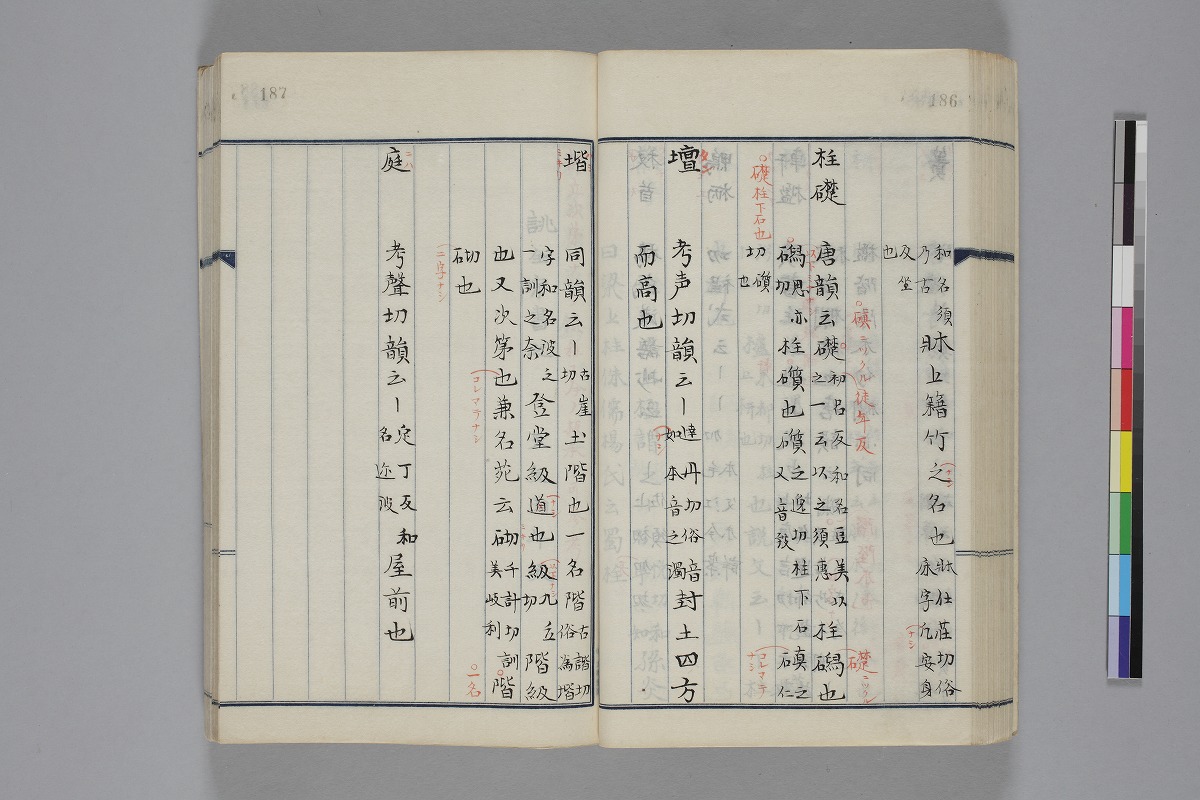 186
和名須
乃古
反坐
也
牀上籍竹之名也
牀仕莊切俗
床字
柱礎
唐韻云礎
初呂反和名豆美以
之一云以之須惠
柱磶也
磶思
切
亦柱礩也礩
之逸切柱下石
又音致
礩
切
也
礎柱下石也
礎
コレマテ
ナシ
壇
考声切韻云一
達丹切俗音
如本音之濁
封土四方
而高也
187
堦
同韻云一
古崖
切
土階也一名階
古諧切
俗為堦
字和名波之
一訓之奈
登堂級道也級
階級
也又次第也兼名苑云砌
千計切訓
美岐利
階
砌也
コレマテナシ
二字ナシ
一名
庭
考聲切韻云一
定丁反和
名迩波
屋前也